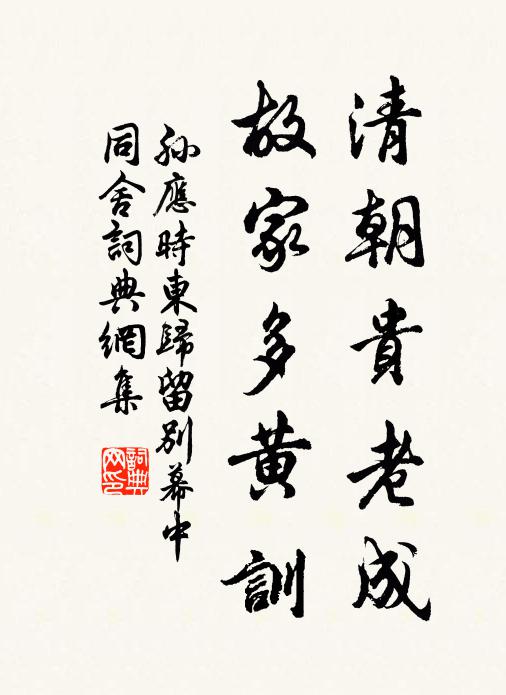 清朝貴老成
故家多黃訓
孫應時東歸留別幕中
同舍詞典網集
詞典网印